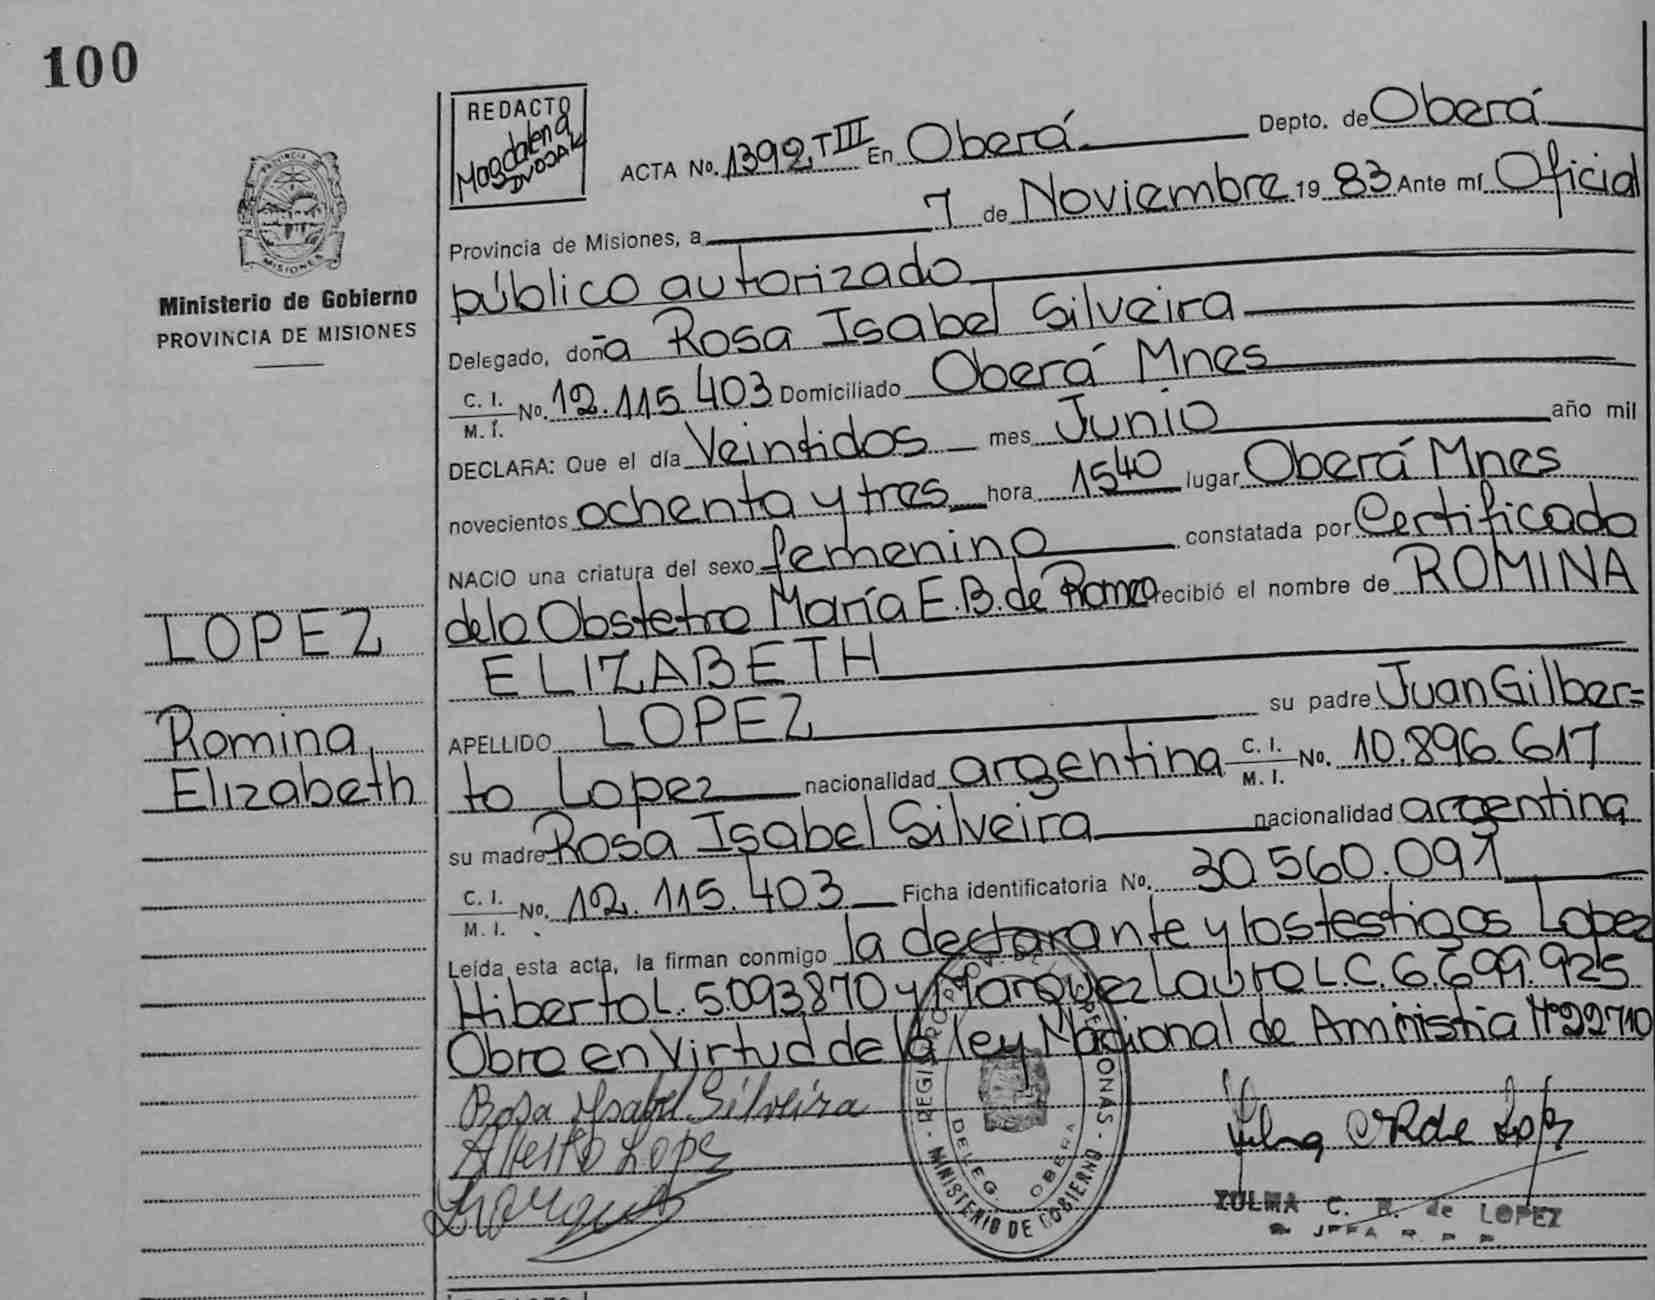 100
REDACTO
Magdalena
DVOJAK
ACTA No. 1392, T III En Oberá Depto. de Oberá
Provincia de Misiones, a 7 de Noviembre 19 83 Ante mí Oficial
público autorizado
Delegado, doña Rosa Isabel Silveira
C. I. M. I. No. 12.115.403 Domiciliado Oberá Mnes
DECLARA: Que el día Veintidos mes Junio año mil
novecientos ochenta y tres hora 15 40 lugar Oberá Mnes
NACIO una criatura del sexo femenino constatada por Certificado
de la Obstetra María E. B. de recibió el nombre de ROMINA
ELIZABETH
APELLIDO LOPEZ su padre Juan Gilber=
to Lopez nacionalidad argentina C. I. M. I. No. 10.896.617
su madre Rosa Isabel Silveira nacionalidad argentina
C. I. M. I. No. 12.115.403 Ficha identificatoria No. 30.560.091
Leída esta acta, la firman conmigo la declarante y los testigos Lopez
Hiberto L. 5.093870 y Marquez Lauro L.C. 6.699.925
Obro en Virtud de la ley Nacional de Amnistia Nº 22710
Rosa Ysabel Silveira
Lopez
Marquez
ZULMA C. R. de LOPEZ
REGISTRO PROV. DE LAS PERSONAS
MINISTERIO DE GOBIERNO
DELEG. OBERA
PROVINCIA DE
MISIONES
Ministerio de Gobierno
PROVINCIA DE MISIONES
LOPEZ
Romina,
Elizabeth